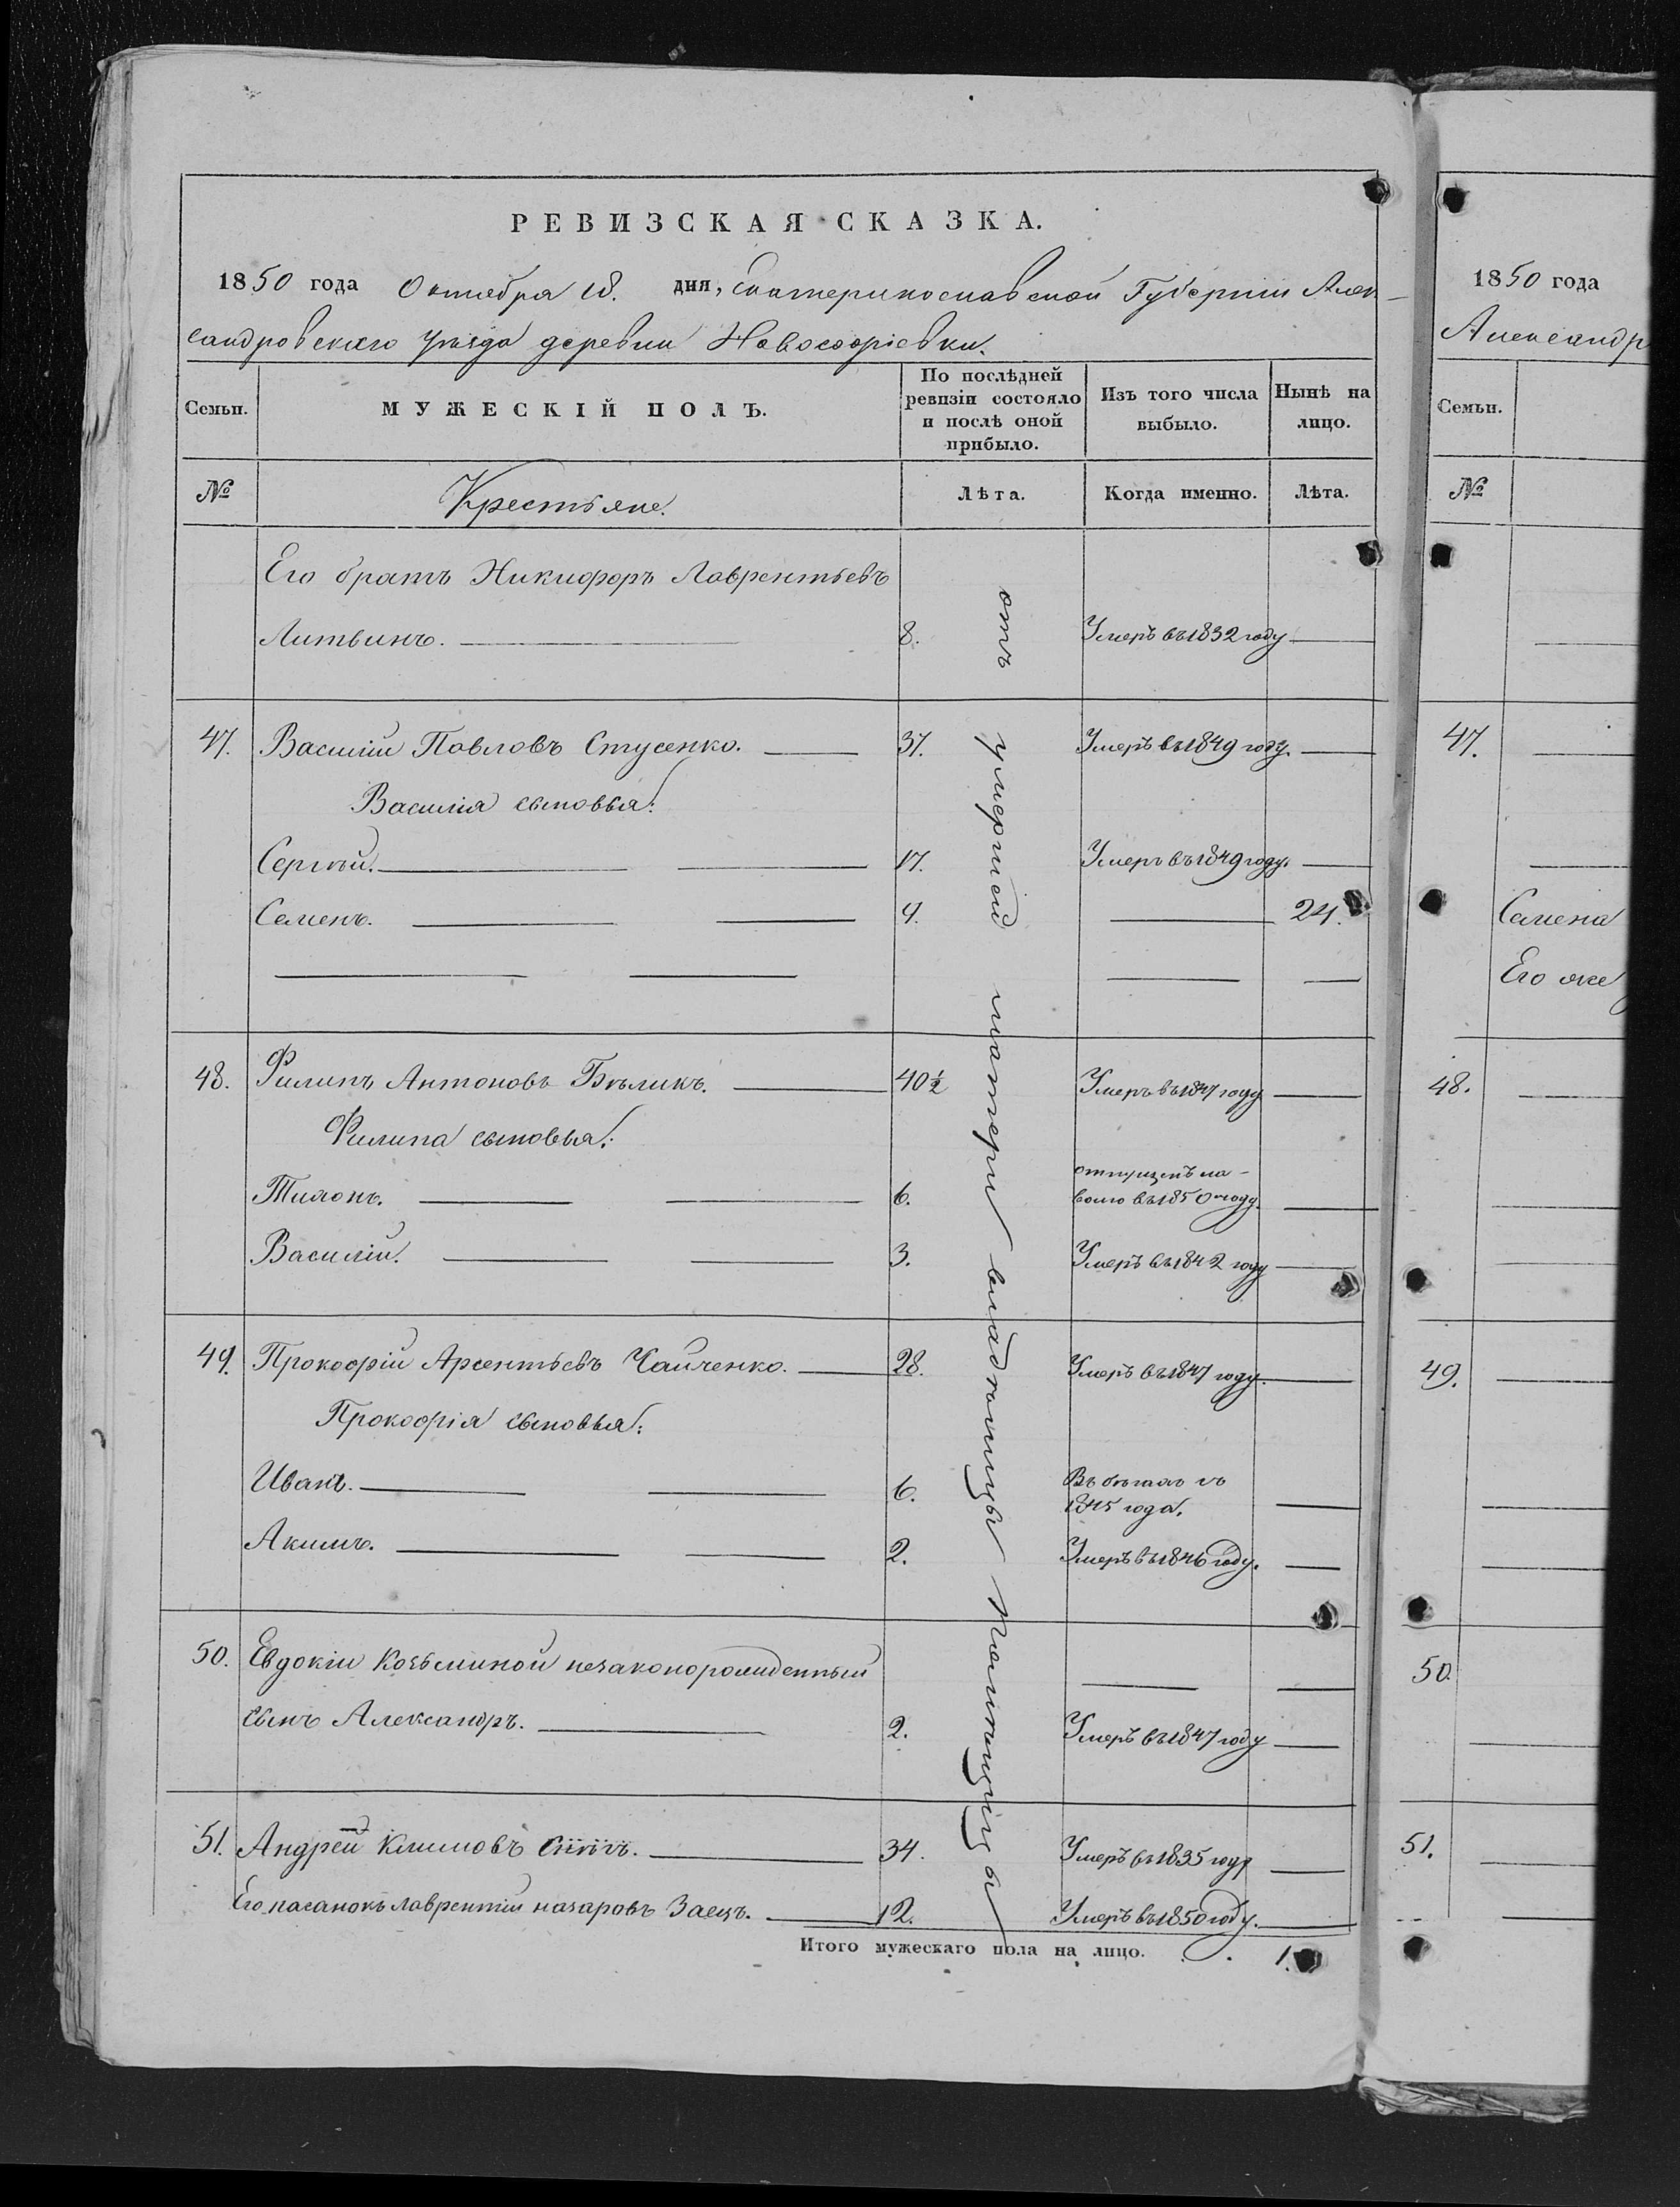 РЕВИЗСКАЯ СКАЗКА.
1850 года Октября 18. дня, Екатеринославской Губерніи Алек-
сандровскаго уѣзда деревни Новософіевки.
Семьи.
МУЖЕСКІЙ ПОЛЪ.
По послѣдней ревизіи состояло и послѣ оной прибыло.
Изъ того числа выбыло.
Нынѣ на лицо.
№
Крестьяне.
Лѣта.
Когда именно.
Лѣта.
Его братъ Никифоръ Лаврентьевъ
Литвинъ. 8. Умеръ въ 1832 году
47. Василій Павловъ Стусенко. 37. Умеръ въ 1849 году.
Василія сыновья:
Сергѣй. 17. Умеръ въ 1849 году.
Семенъ. 4. 24.
48. Филипъ Антоновъ Бѣликъ. 40 ½ Умеръ въ 1847 году
Филипа сыновья:
Тихонъ. 6. отпущенъ на-
волю въ 1850 году.
Василій. 3. Умеръ въ 1842 году
49. Прокофій Арсентьевъ Чайченко. 28. Умеръ въ 1847 году.
Прокофія сыновья:
Иванъ. 6. Въ бѣгахъ съ
1845 года.
Акимъ. 2. Умеръ въ 1846 году.
50. Евдокіи Козьминой незаконорожденный
сынъ Александръ. 2. Умеръ въ 1847 году
51. Андрей Климовъ 34. Умеръ въ 1835 году
Его пасанокъ Лаврентій Назаровъ Заецъ. 12. Умеръ въ 1850 году.
Итого мужескаго пола на лицо. 1.
отъ умершей матери владѣлицы
1850 года
Александр
Семьи.
№
47.
Семена
Его же
48.
49.
50.
51.